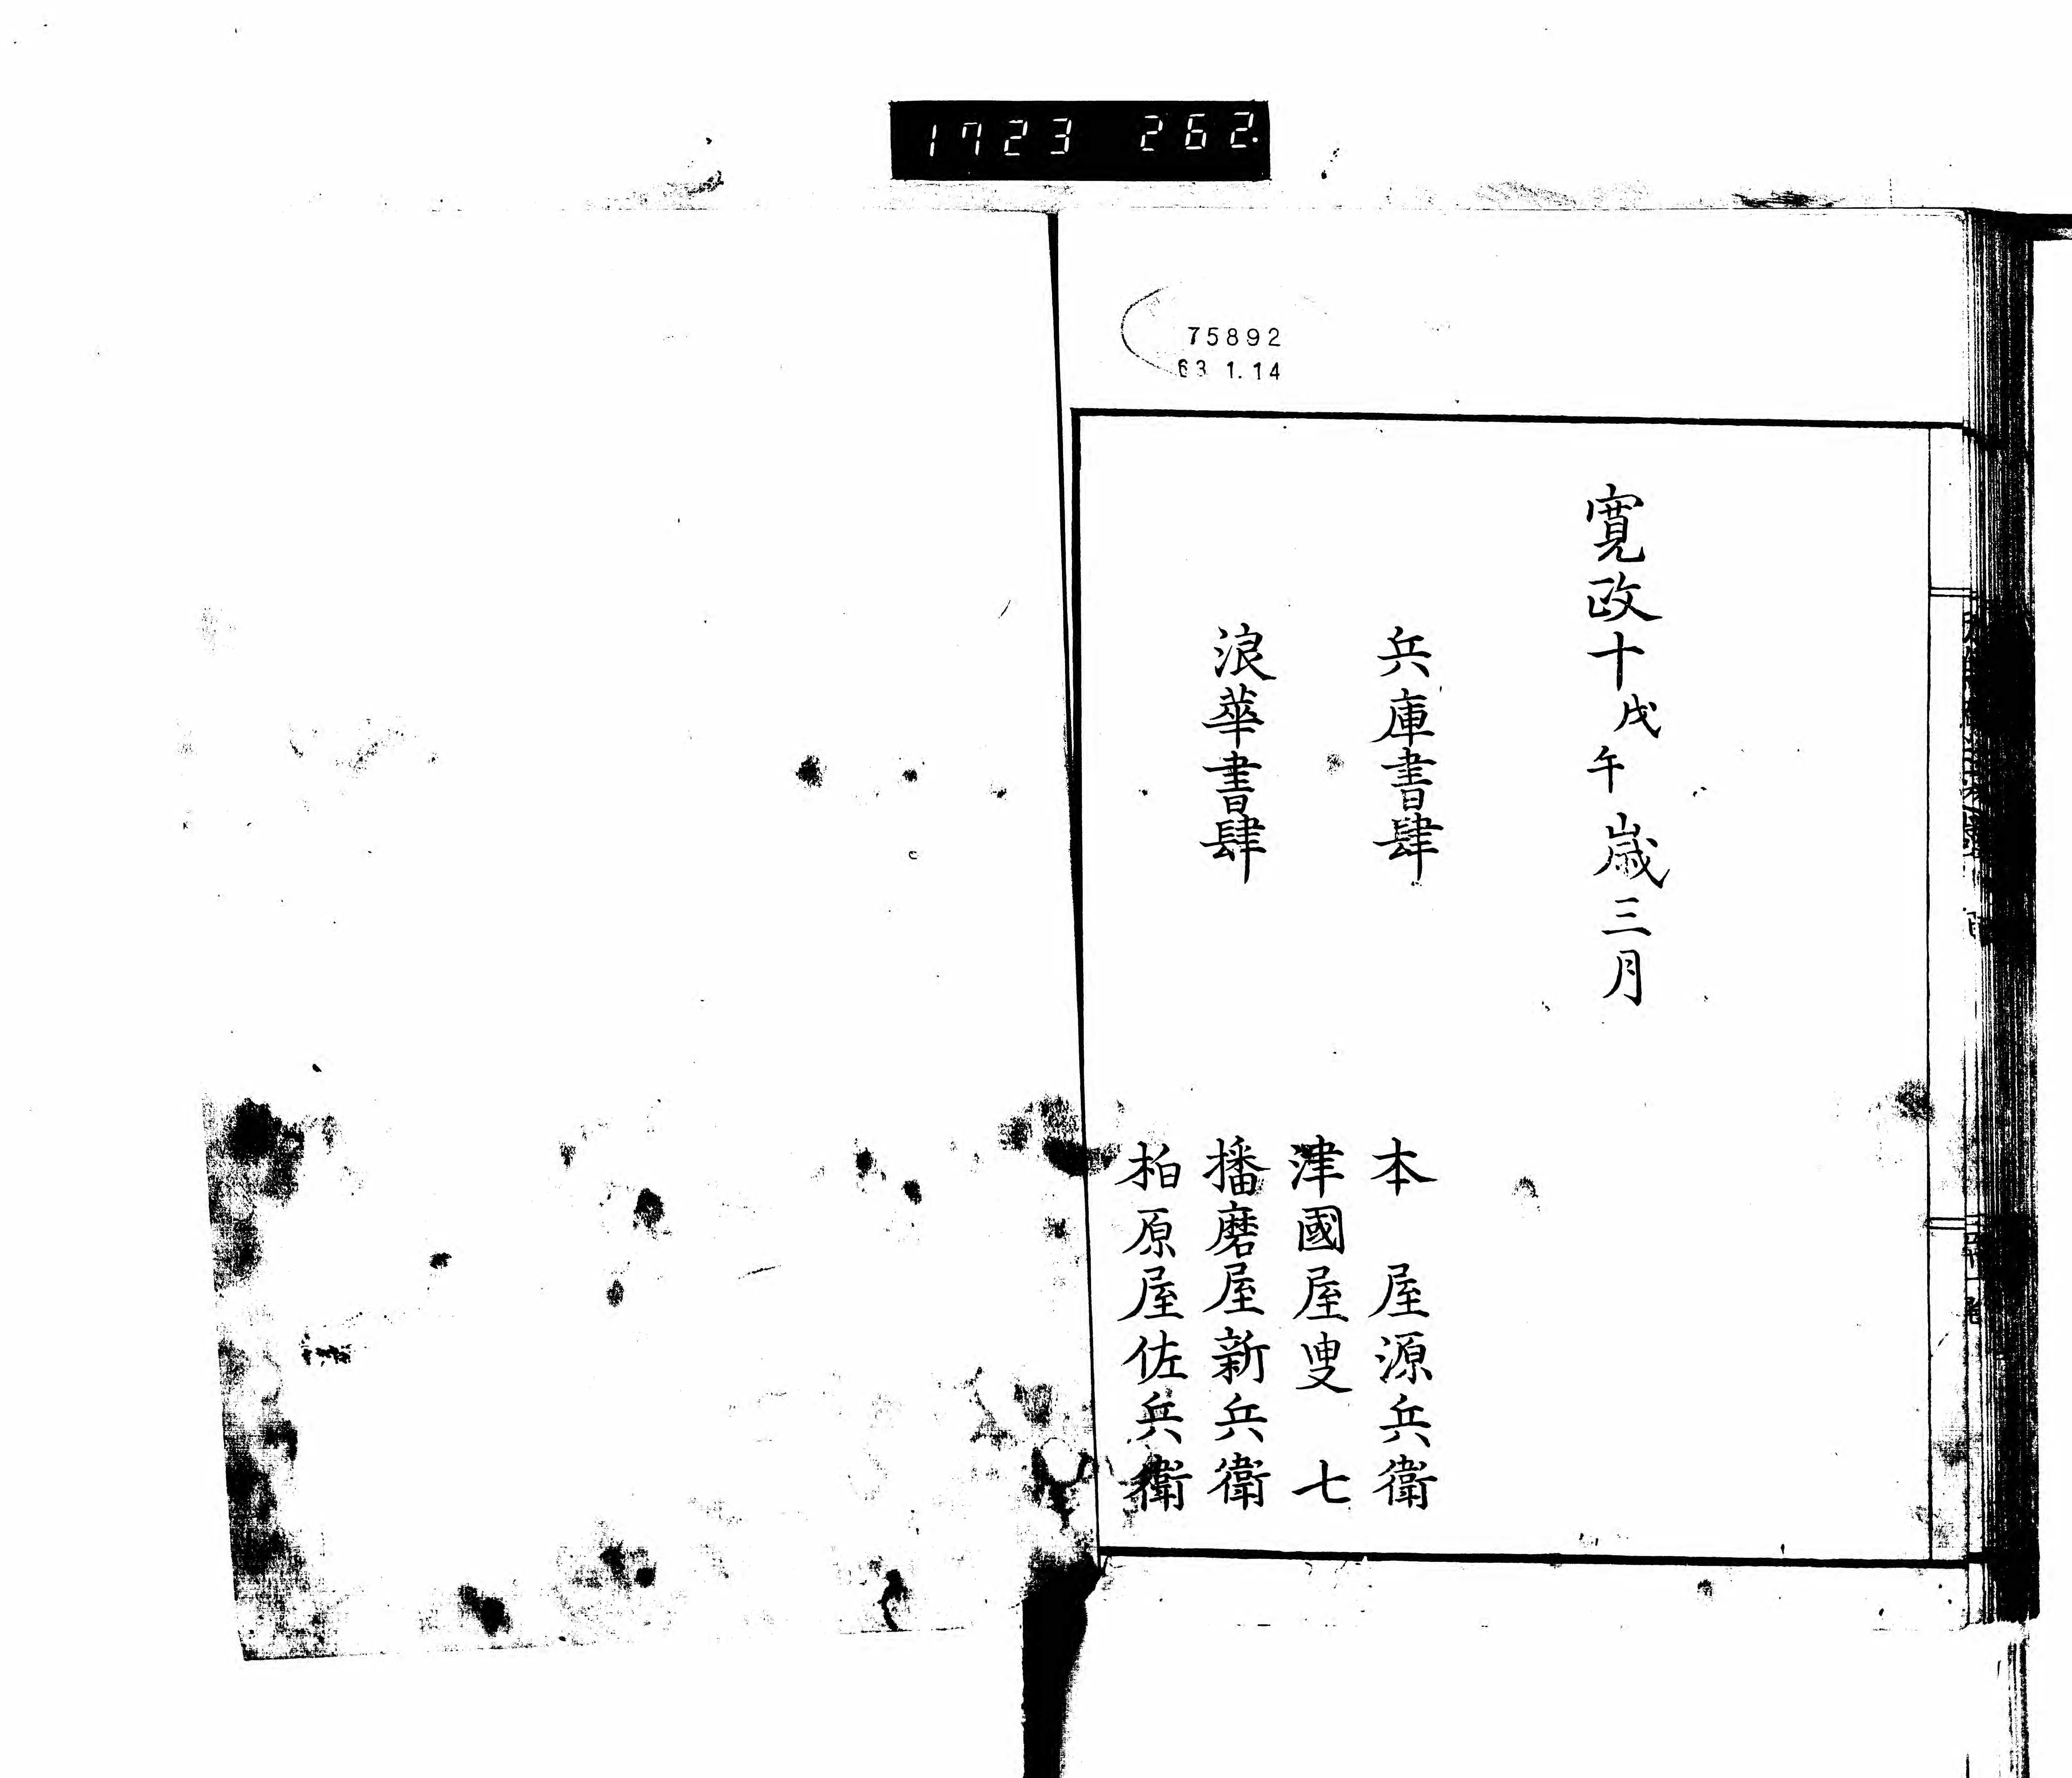 1723 262
75892
63 1.14
寛政十戊午歳三月
兵庫書肆 本屋源兵衛
津國屋叟七
浪華書肆 播磨屋新兵衛
柏原屋佐兵衛